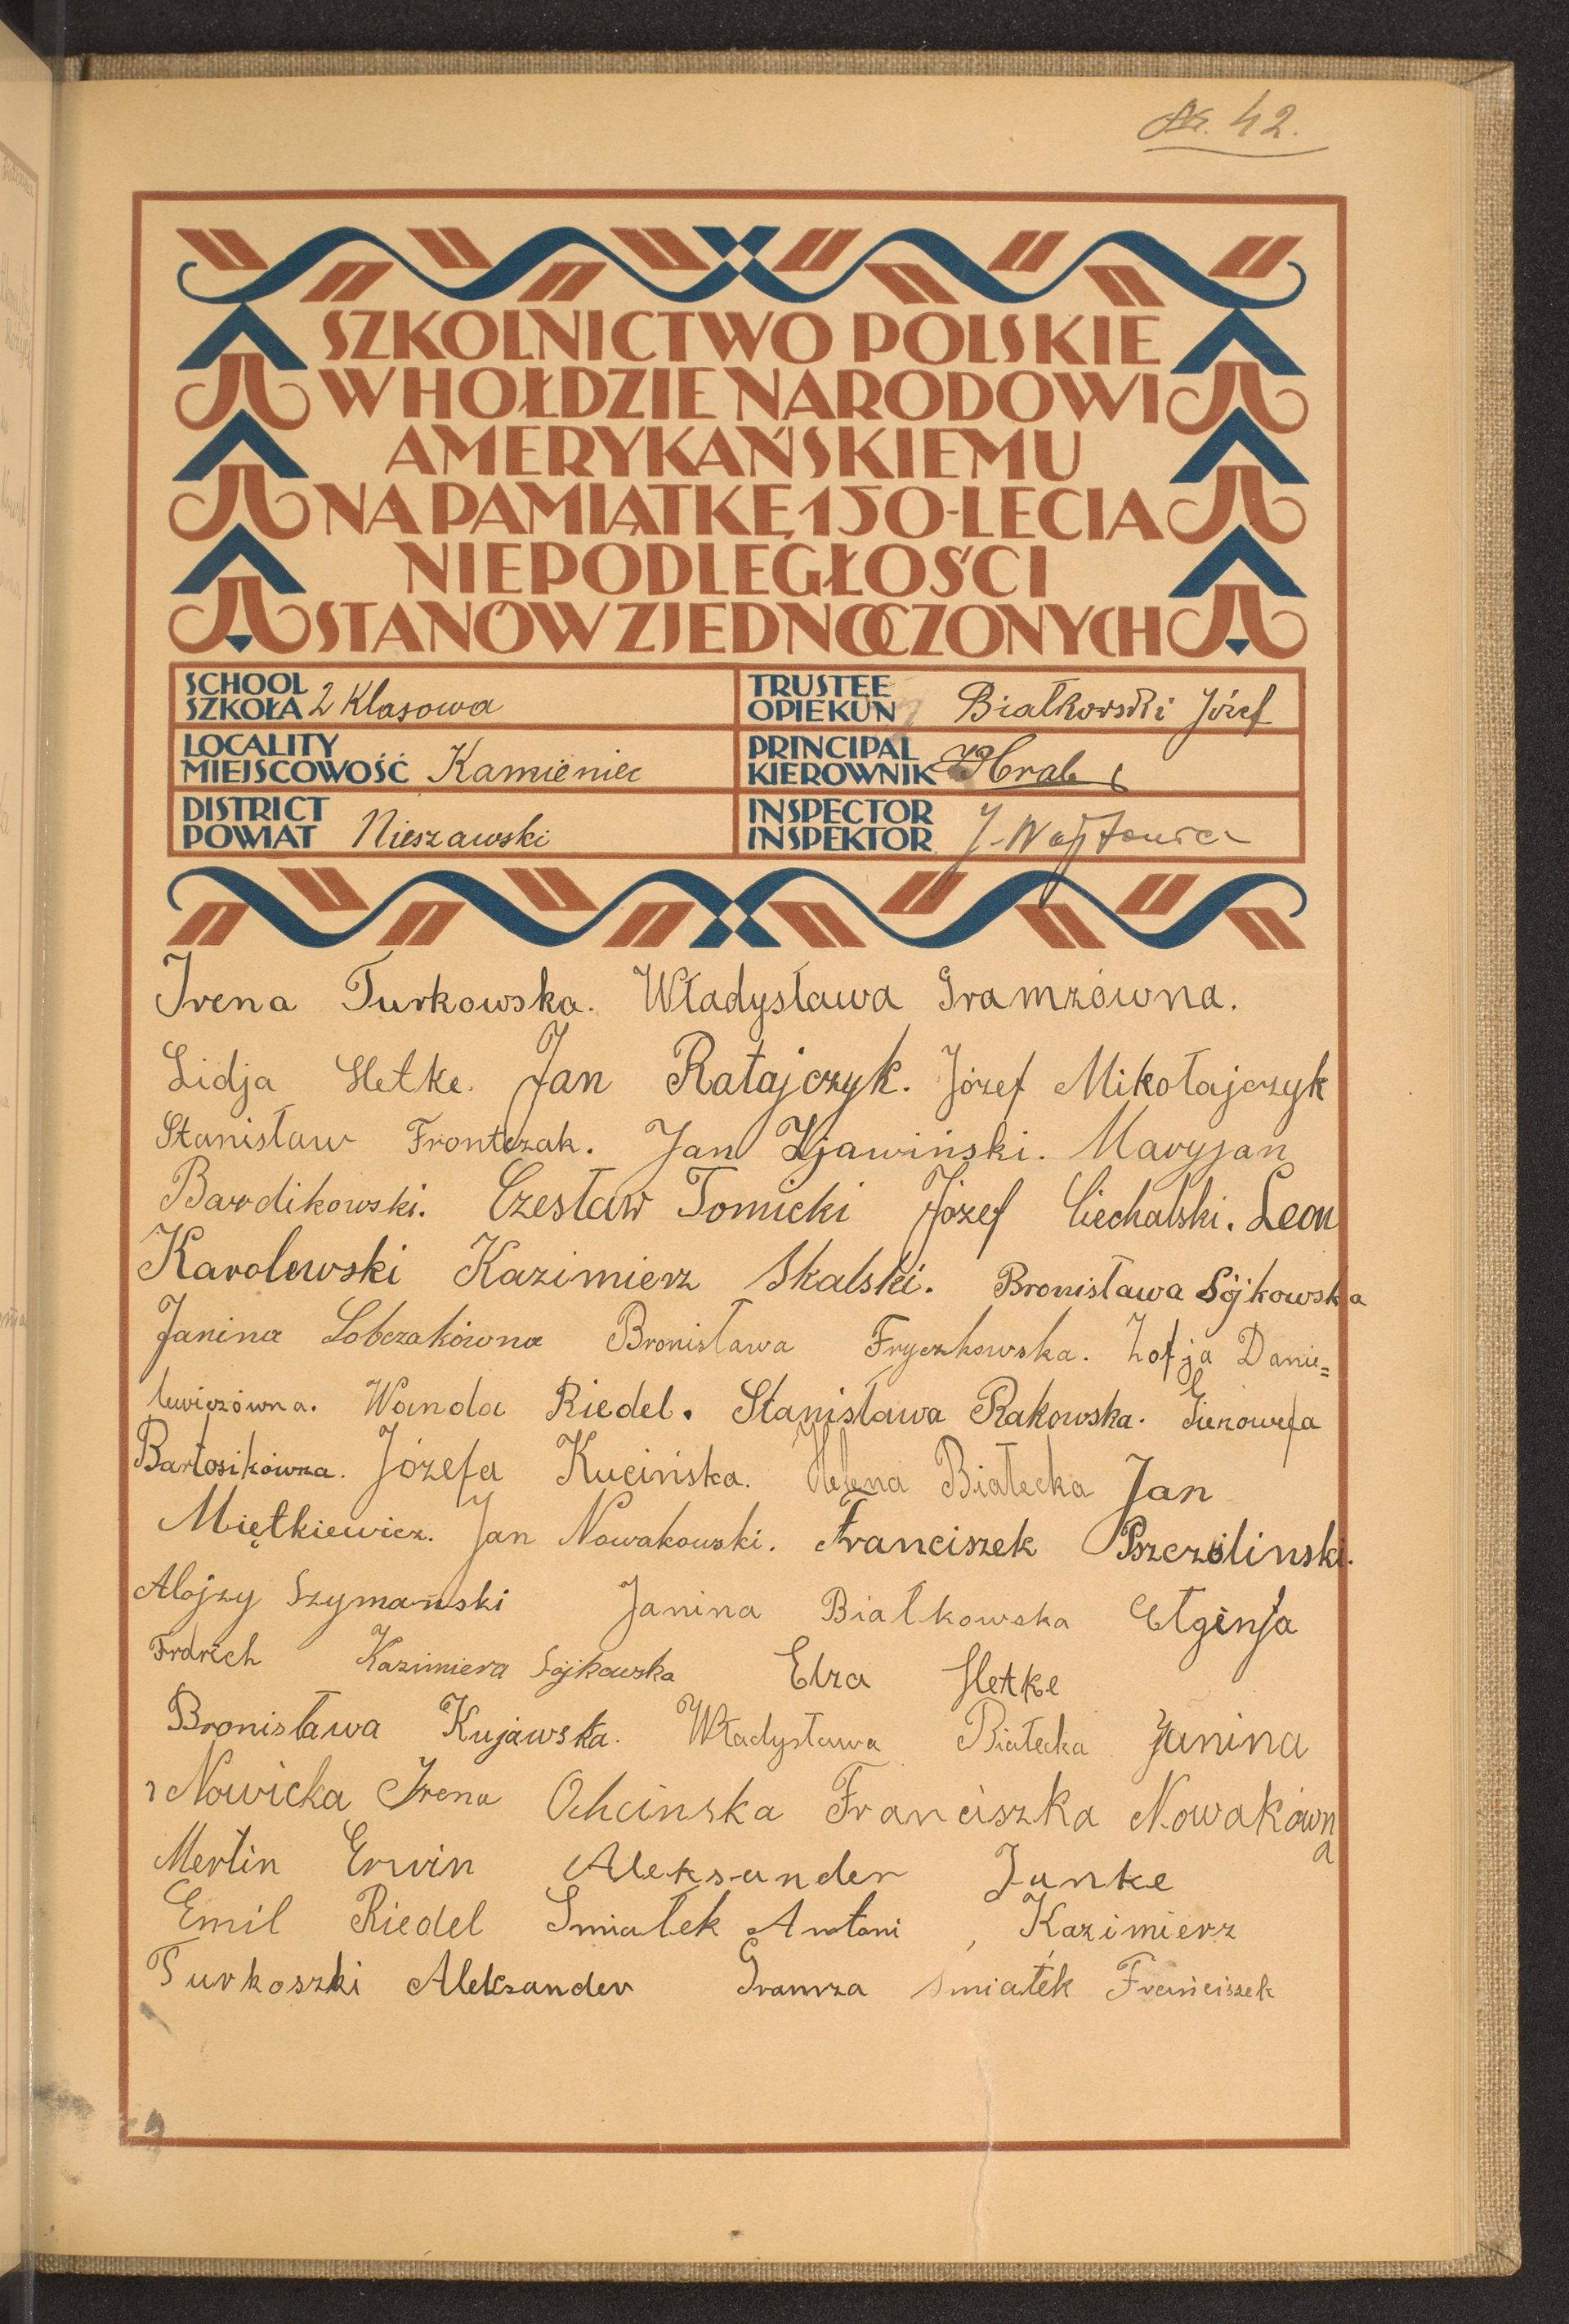 Nr. 42.
SZKOLNICTWO POLSKIE
W HOŁDZIE NARODOWI
AMERYKAŃSKIEMU
NA PAMIĄTKĘ 150-LECIA
NIEPODLEGŁOŚCI
STANÓW ZJEDNOCZONYCH
SCHOOL
SZKOŁA 2 Klasowa
TRUSTEE
OPIEKUN Białkowski Józef
LOCALITY
MIEJSCOWOŚĆ Kamieniec
PRINCIPAL
KIEROWNIK
DISTRICT
POWIAT Nieszawski
INSPECTOR
INSPEKTOR J. Wojtowicz
Irena Turkowska. Władysława Gramzówna.
Lidja Hetke. Jan Ratajczyk. Józef Mikołajczyk
Stanisław Frontczak. Jan Zjawiński. Maryjan
Bardikowski. Czesław Tomicki Józef Ciechalski. Leon
Karolewski Kazimierz Skalski. Bronisława Sójkowska
Janina Lobczakówna Bronisława Fryczkowska. Zofja Danie=
lewiczówna. Wanda Riedel. Stanisława Rakowska. Gienowefa
Bartosikówna. Józefa Kucińska. Helena Białecka Jan
Miętkiewicz. Jan Nowakowski. Franciszek Pszczólinski.
Alojzy Szymański Janina Białkowska Elgienja
Frdrich Kazimiera Sójkowska Elza Hetke
Bronisława Kujawska. Władysława Białecka Janina
Nowicka Irena Ochcinska Franciszka Nowakówn
a
Mertin Erwin Aleksander Janke
Emil Riedel Smiałek Antoni , Kazimierz
Turkoszki Aleksander Gramza Smiałek Franciszek